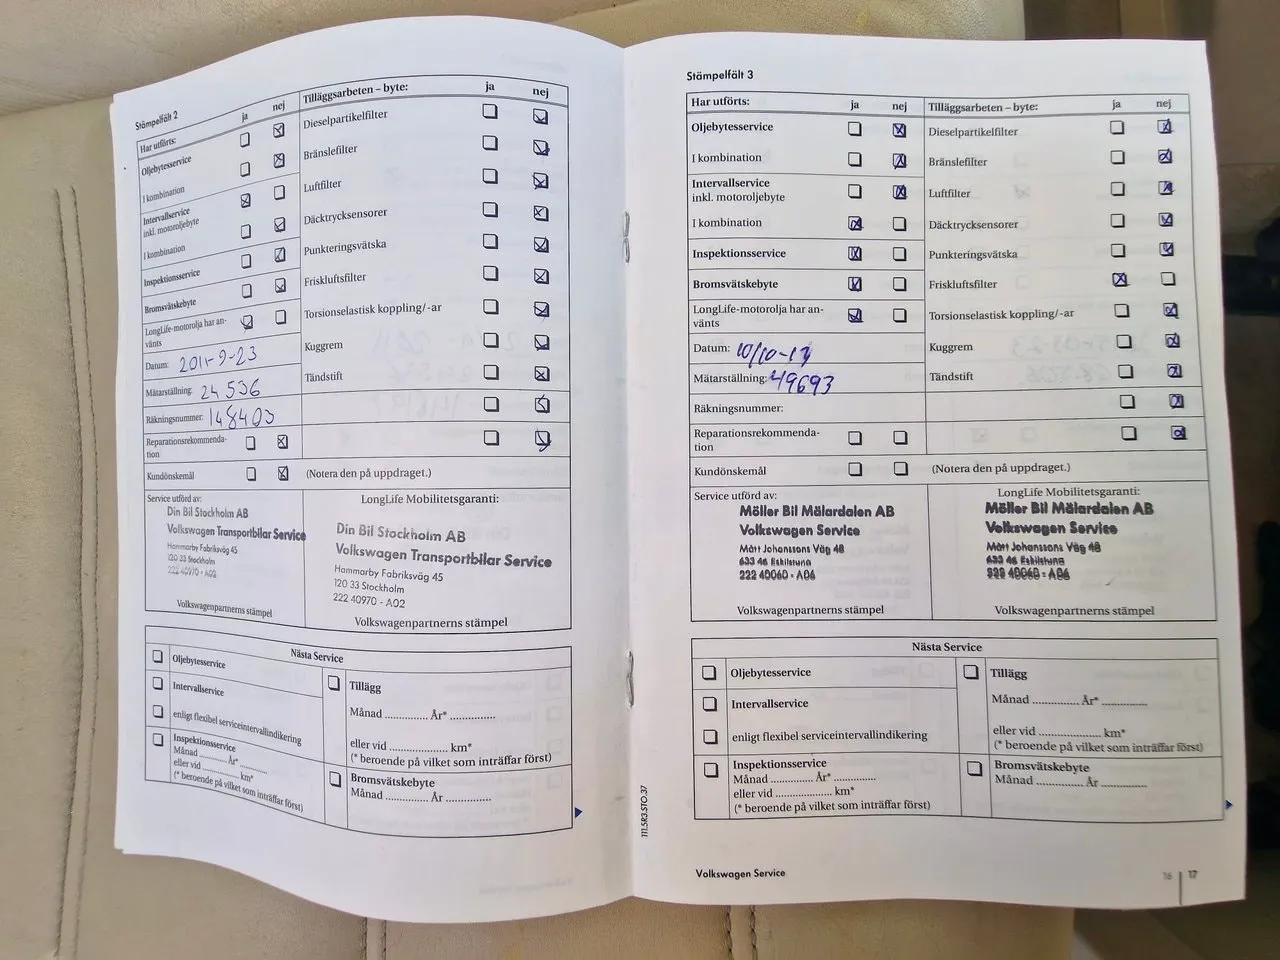 Stämpelfält 2
Har utförts: ja nej
Oljebytesservice
I kombination
Intervallservice
inkl. motoroljebyte
I kombination
Inspektionsservice
Bromsvätskebyte
LongLife-motorolja har an-
vänts
Datum: 2011-9-23
Mätarställning: 24 536
Räkningsnummer: 148403
Reparationsrekommenda-
tion
Kundönskemål
(Notera den på uppdraget.)
Tilläggsarbeten – byte: ja nej
Dieselpartikelfilter
Bränslefilter
Luftfilter
Däcktrycksensorer
Punkteringsvätska
Friskluftsfilter
Torsionselastisk koppling/-ar
Kuggrem
Tändstift
Service utförd av:
Din Bil Stockholm AB
Volkswagen Transportbilar Service
Hammarby Fabriksväg 45
120 33 Stockholm
222 40970 - A02
Volkswagenpartnerns stämpel
LongLife Mobilitetsgaranti:
Din Bil Stockholm AB
Volkswagen Transportbilar Service
Hammarby Fabriksväg 45
120 33 Stockholm
222 40970 - A02
Volkswagenpartnerns stämpel
Nästa Service
Oljebytesservice
Intervallservice
enligt flexibel serviceintervallindikering
Inspektionsservice
Månad .............. År* ..............
eller vid .............. km*
(* beroende på vilket som inträffar först)
Tillägg
Månad .............. År* ..............
eller vid .............. km*
(* beroende på vilket som inträffar först)
Bromsvätskebyte
Månad .............. År ..............
Stämpelfält 3
Har utförts: ja nej
Oljebytesservice
I kombination
Intervallservice
inkl. motoroljebyte
I kombination
Inspektionsservice
Bromsvätskebyte
LongLife-motorolja har an-
vänts
Datum:
Mätarställning: 49693
Räkningsnummer:
Reparationsrekommenda-
tion
Kundönskemål
(Notera den på uppdraget.)
Tilläggsarbeten – byte: ja nej
Dieselpartikelfilter
Bränslefilter
Luftfilter
Däcktrycksensorer
Punkteringsvätska
Friskluftsfilter
Torsionselastisk koppling/-ar
Kuggrem
Tändstift
Service utförd av:
Möller Bil Mälardalen AB
Volkswagen Service
Mått Johanssons Väg 48
633 46 Eskilstuna
222 40060 - A06
Volkswagenpartnerns stämpel
LongLife Mobilitetsgaranti:
Möller Bil Mälardalen AB
Volkswagen Service
Mått Johanssons Väg 48
633 46 Eskilstuna
222 40060 - A06
Volkswagenpartnerns stämpel
Nästa Service
Oljebytesservice
Intervallservice
enligt flexibel serviceintervallindikering
Inspektionsservice
Månad .............. År* ..............
eller vid .............. km*
(* beroende på vilket som inträffar först)
Tillägg
Månad .............. År* ..............
eller vid .............. km*
(* beroende på vilket som inträffar först)
Bromsvätskebyte
Månad .............. År ..............
111.5R3.STO.37
Volkswagen Service
16 17